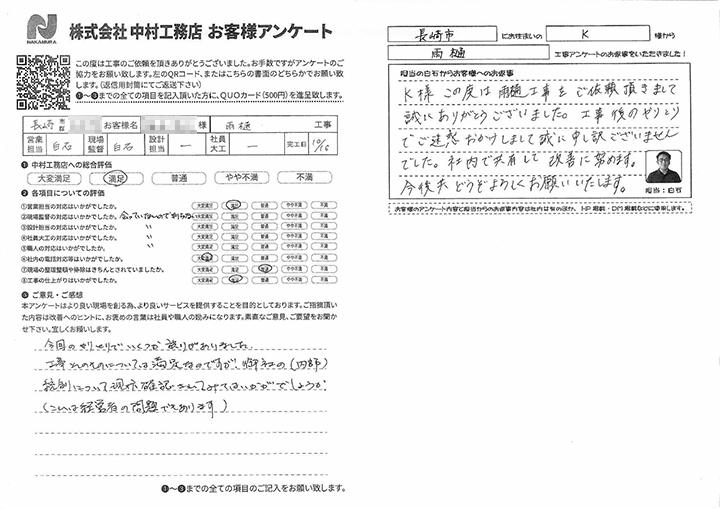 N
NAKAMURA
株式会社 中村工務店 お客様アンケート
この度は工事のご依頼を頂きありがとうございました。お手数ですがアンケートのご
協力をお願い致します。左のQRコード、またはこちらの書面のどちらかでお願い致
します。(返信用封筒にてご返送下さい)
❶〜❸までの全ての項目を記入頂いた方に、QUOカード(500円)を進呈致します。
長崎 市 郡 お客様名 様 雨樋 工事
営業担当 白石 現場監督 白石 設計担当 ー 社員大工 ー 完工日 10/16
❶ 中村工務店への総合評価
大変満足 満足 普通 やや不満 不満
❷ 各項目についての評価
①営業担当の対応はいかがでしたか。 大変満足 満足 普通 やや不満 不満
②現場監督の対応はいかがでしたか。 会っていないので判らない 大変満足 満足 普通 やや不満 不満
③設計担当の対応はいかがでしたか。 〃 大変満足 満足 普通 やや不満 不満
④社員大工の対応はいかがでしたか。 〃 大変満足 満足 普通 やや不満 不満
⑤職人の対応はいかがでしたか。 〃 大変満足 満足 普通 やや不満 不満
⑥社内の電話対応等はいかがでしたか。 大変満足 満足 普通 やや不満 不満
⑦現場の整理整頓や掃除はきちんとされていましたか。 大変満足 満足 普通 やや不満 不満
⑧工事の仕上がりはいかがでしたか。 大変満足 満足 普通 やや不満 不満
❸ ご意見・ご感想
本アンケートはより良い現場を創る為、より良いサービスを提供することを目的としております。ご指摘頂い
た内容は改善へのヒントに、お褒めの言葉は社員や職人の励みになります。素直なご意見、ご要望をお聞か
せ下さい。宜しくお願いします。
今回のやりとりでいくつか誤りがありました。
工事そのものについては満足なのですが、御社の(内部)
統制について現状確認されてみてはいかがでしょうか
(これは経営者の問題でもあります)
❶〜❸までの全ての項目のご記入をお願い致します。
長崎市 にお住まいの K 様から
雨樋 工事アンケートのお返事をいただきました!
担当の白石からお客様へのお返事
K様 この度は雨樋工事をご依頼頂きまして
誠にありがとうございました。工事後のやりとり
でご迷惑おかけしまして誠に申し訳ございません
でした。社内で共有して改善に努めます。
今後共どうぞよろしくお願いいたします。
担当:白石